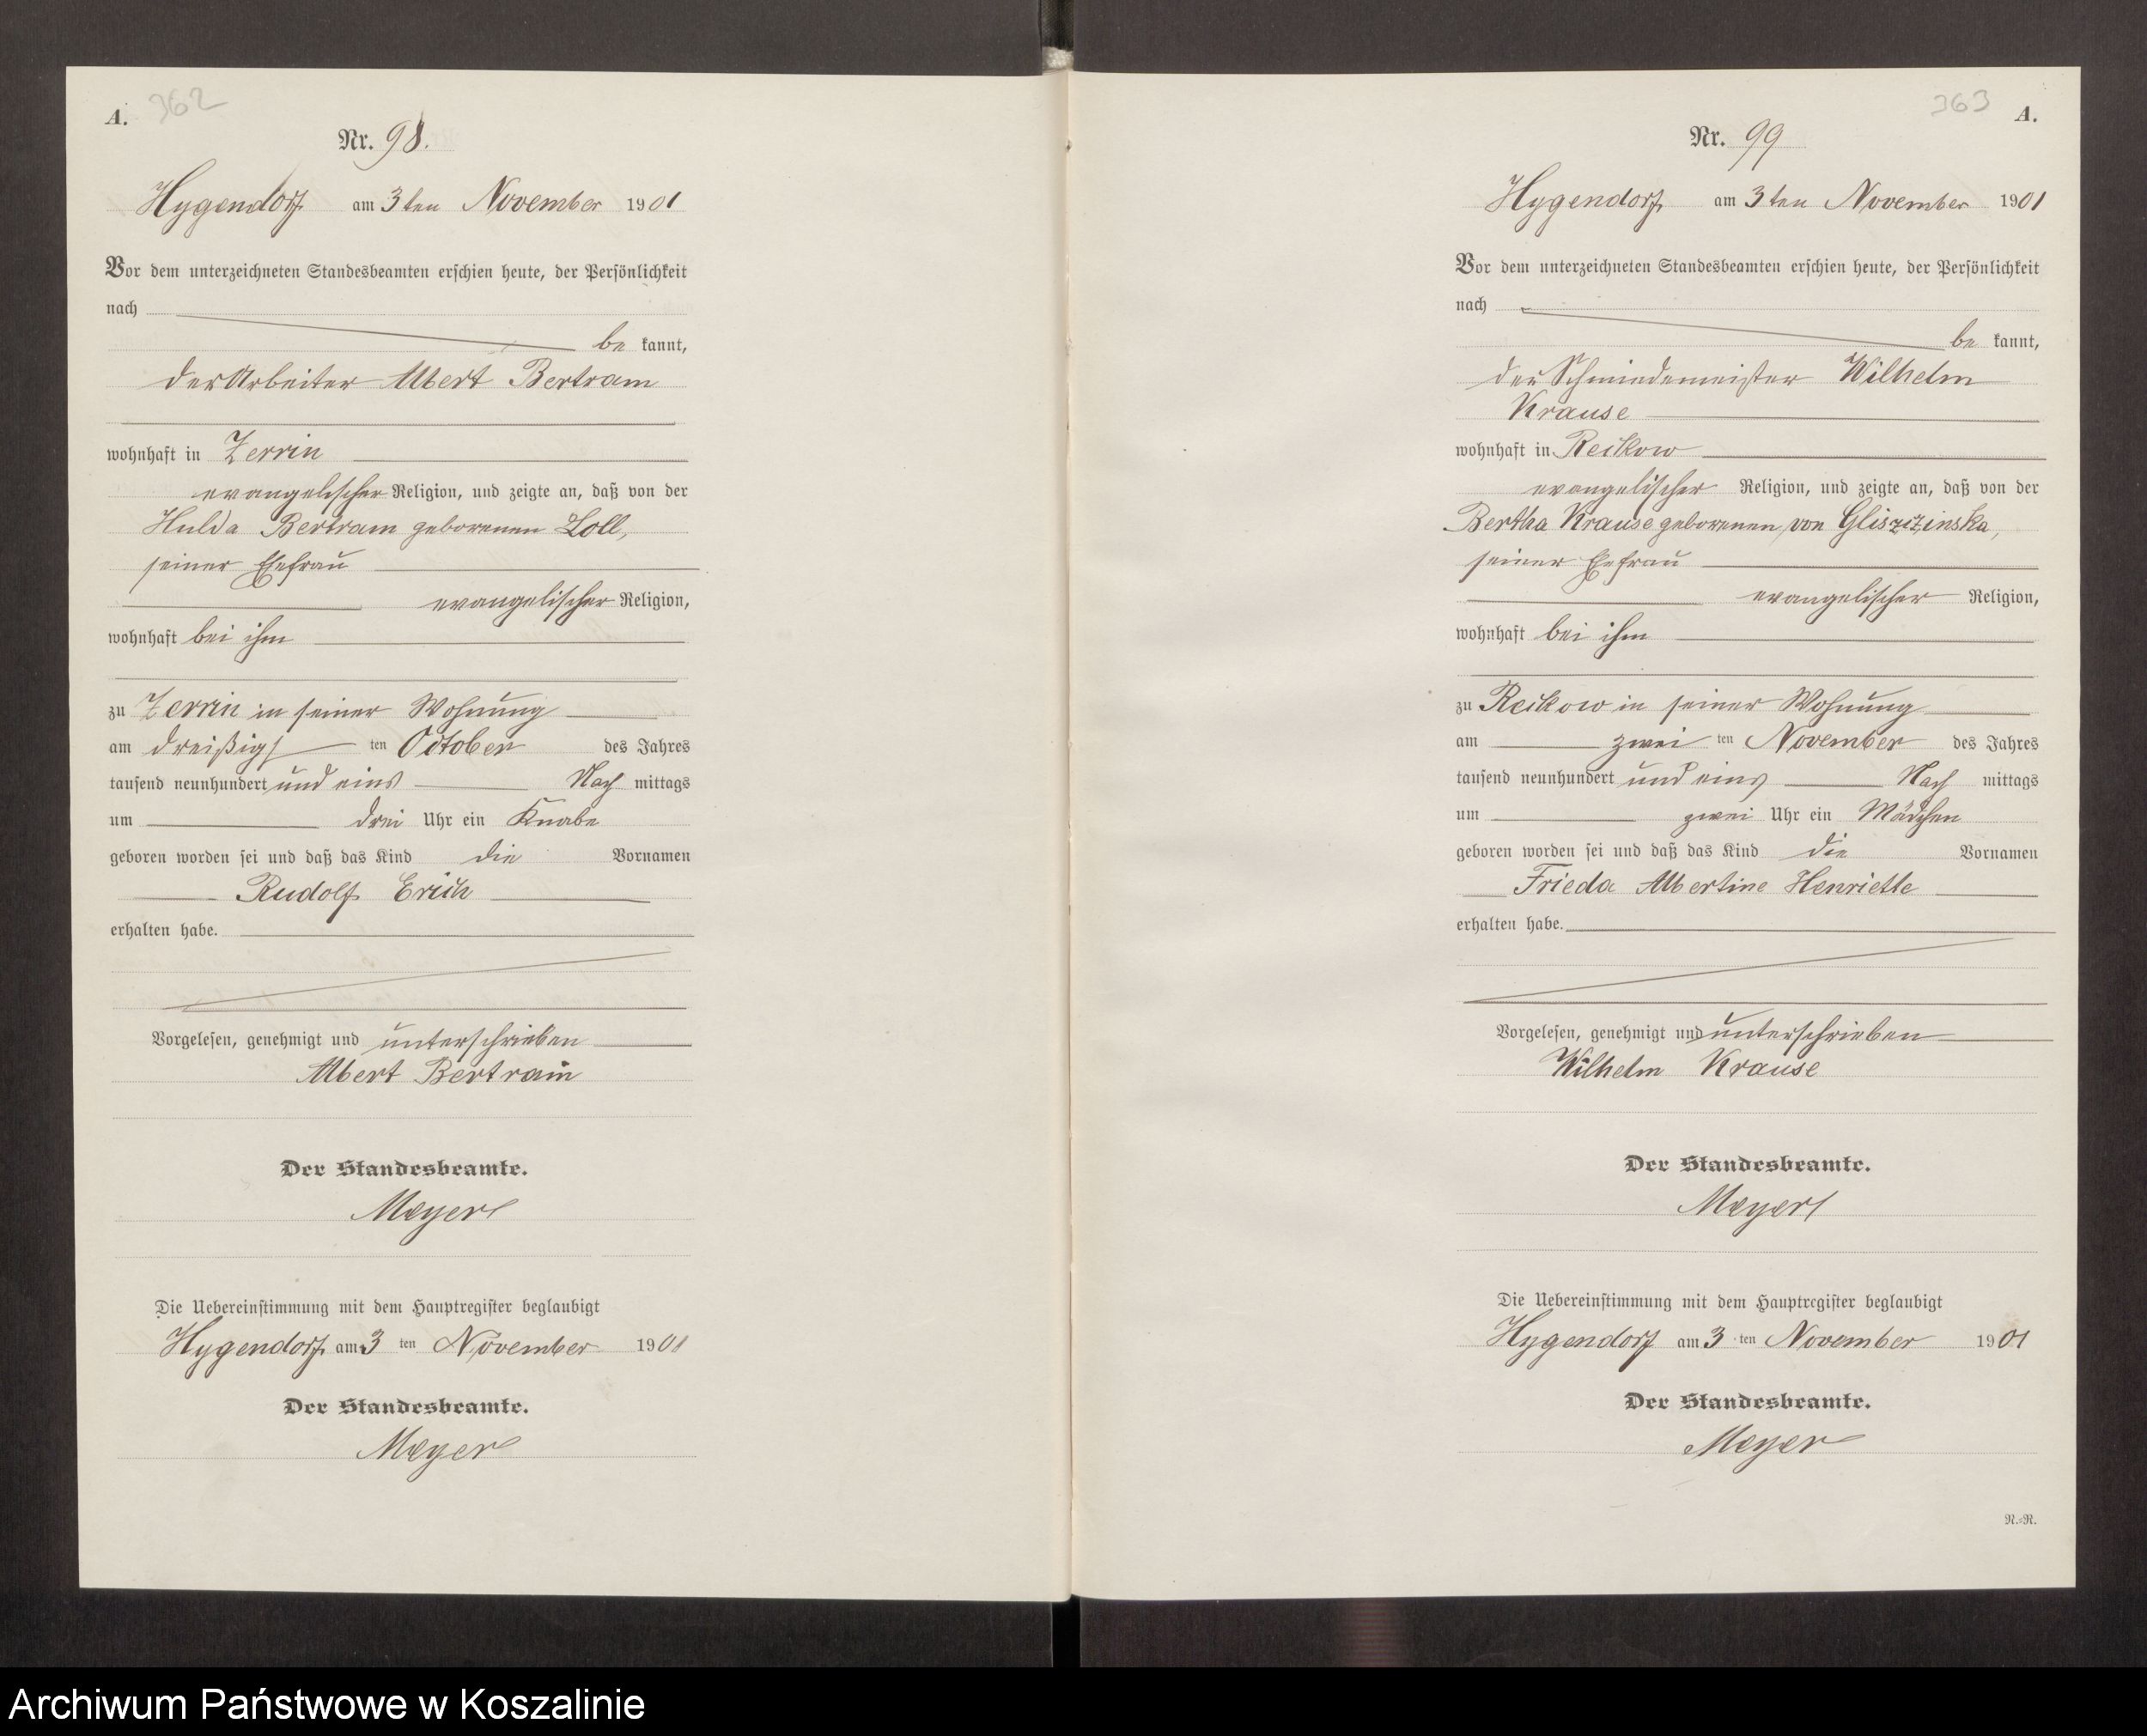 A. 362
Nr. 98.
Hygendorf am 3ten November 1901
Vor dem unterzeichneten Standesbeamten erschien heute, der Persönlichkeit
nach
be kannt,
der Arbeiter Albert Bertram
wohnhaft in Zerrin
evangelischer Religion, und zeigte an, daß von der
Hulda Bertram geborenen Loll,
seiner Ehefrau
evangelischer Religion,
wohnhaft bei ihm
zu Zerrin in seiner Wohnung
am dreißigs ten October des Jahres
tausend neunhundert und eins Nach mittags
um drei Uhr ein Knabe
geboren worden sei und daß das Kind die Vornamen
Rudolf Erich
erhalten habe.
Vorgelesen, genehmigt und unterschrieben
Albert Bertram
Der Standesbeamte.
Meyer
Die Uebereinstimmung mit dem Hauptregister beglaubigt
Hygendorf am 3 ten November 1901
Der Standesbeamte.
Meyer
363 A.
Nr. 99
Hygendorf am 3ten November 1901
Vor dem unterzeichneten Standesbeamten erschien heute, der Persönlichkeit
nach
be kannt,
der Schmiedemeister Wilhelm
Krause
wohnhaft in Reckow
evangelischer Religion, und zeigte an, daß von der
Bertha Krause geborenen von Gliszczinska,
seiner Ehefrau
evangelischer Religion,
wohnhaft bei ihm
zu Reckow in seiner Wohnung
am zwei ten November des Jahres
tausend neunhundert und eins Nach mittags
um zwei Uhr ein Mädchen
geboren worden sei und daß das Kind die Vornamen
Frieda Albertine Henriette
erhalten habe.
Vorgelesen, genehmigt und unterschrieben
Wilhelm Krause
Der Standesbeamte.
Meyer
Die Uebereinstimmung mit dem Hauptregister beglaubigt
Hygendorf am 3 ten November 1901
Der Standesbeamte.
Meyer
N.-R.
Archiwum Państwowe w Koszalinie